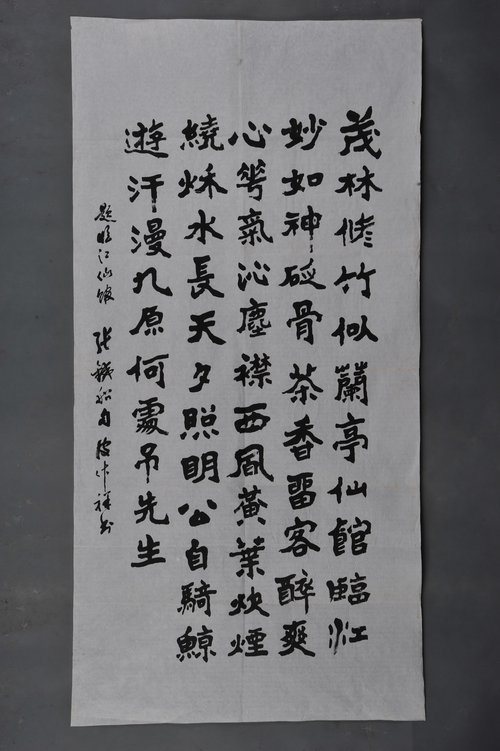 茂林修竹似蘭亭仙館臨江
妙如神砭骨茶香畱客醉爽
心華氣沁塵襟西風黃葉炊煙
繞秌水長天夕照明公自騎鯨
遊汗漫九原何處吊先生
題臨江仙館 張鐵船句 祥書